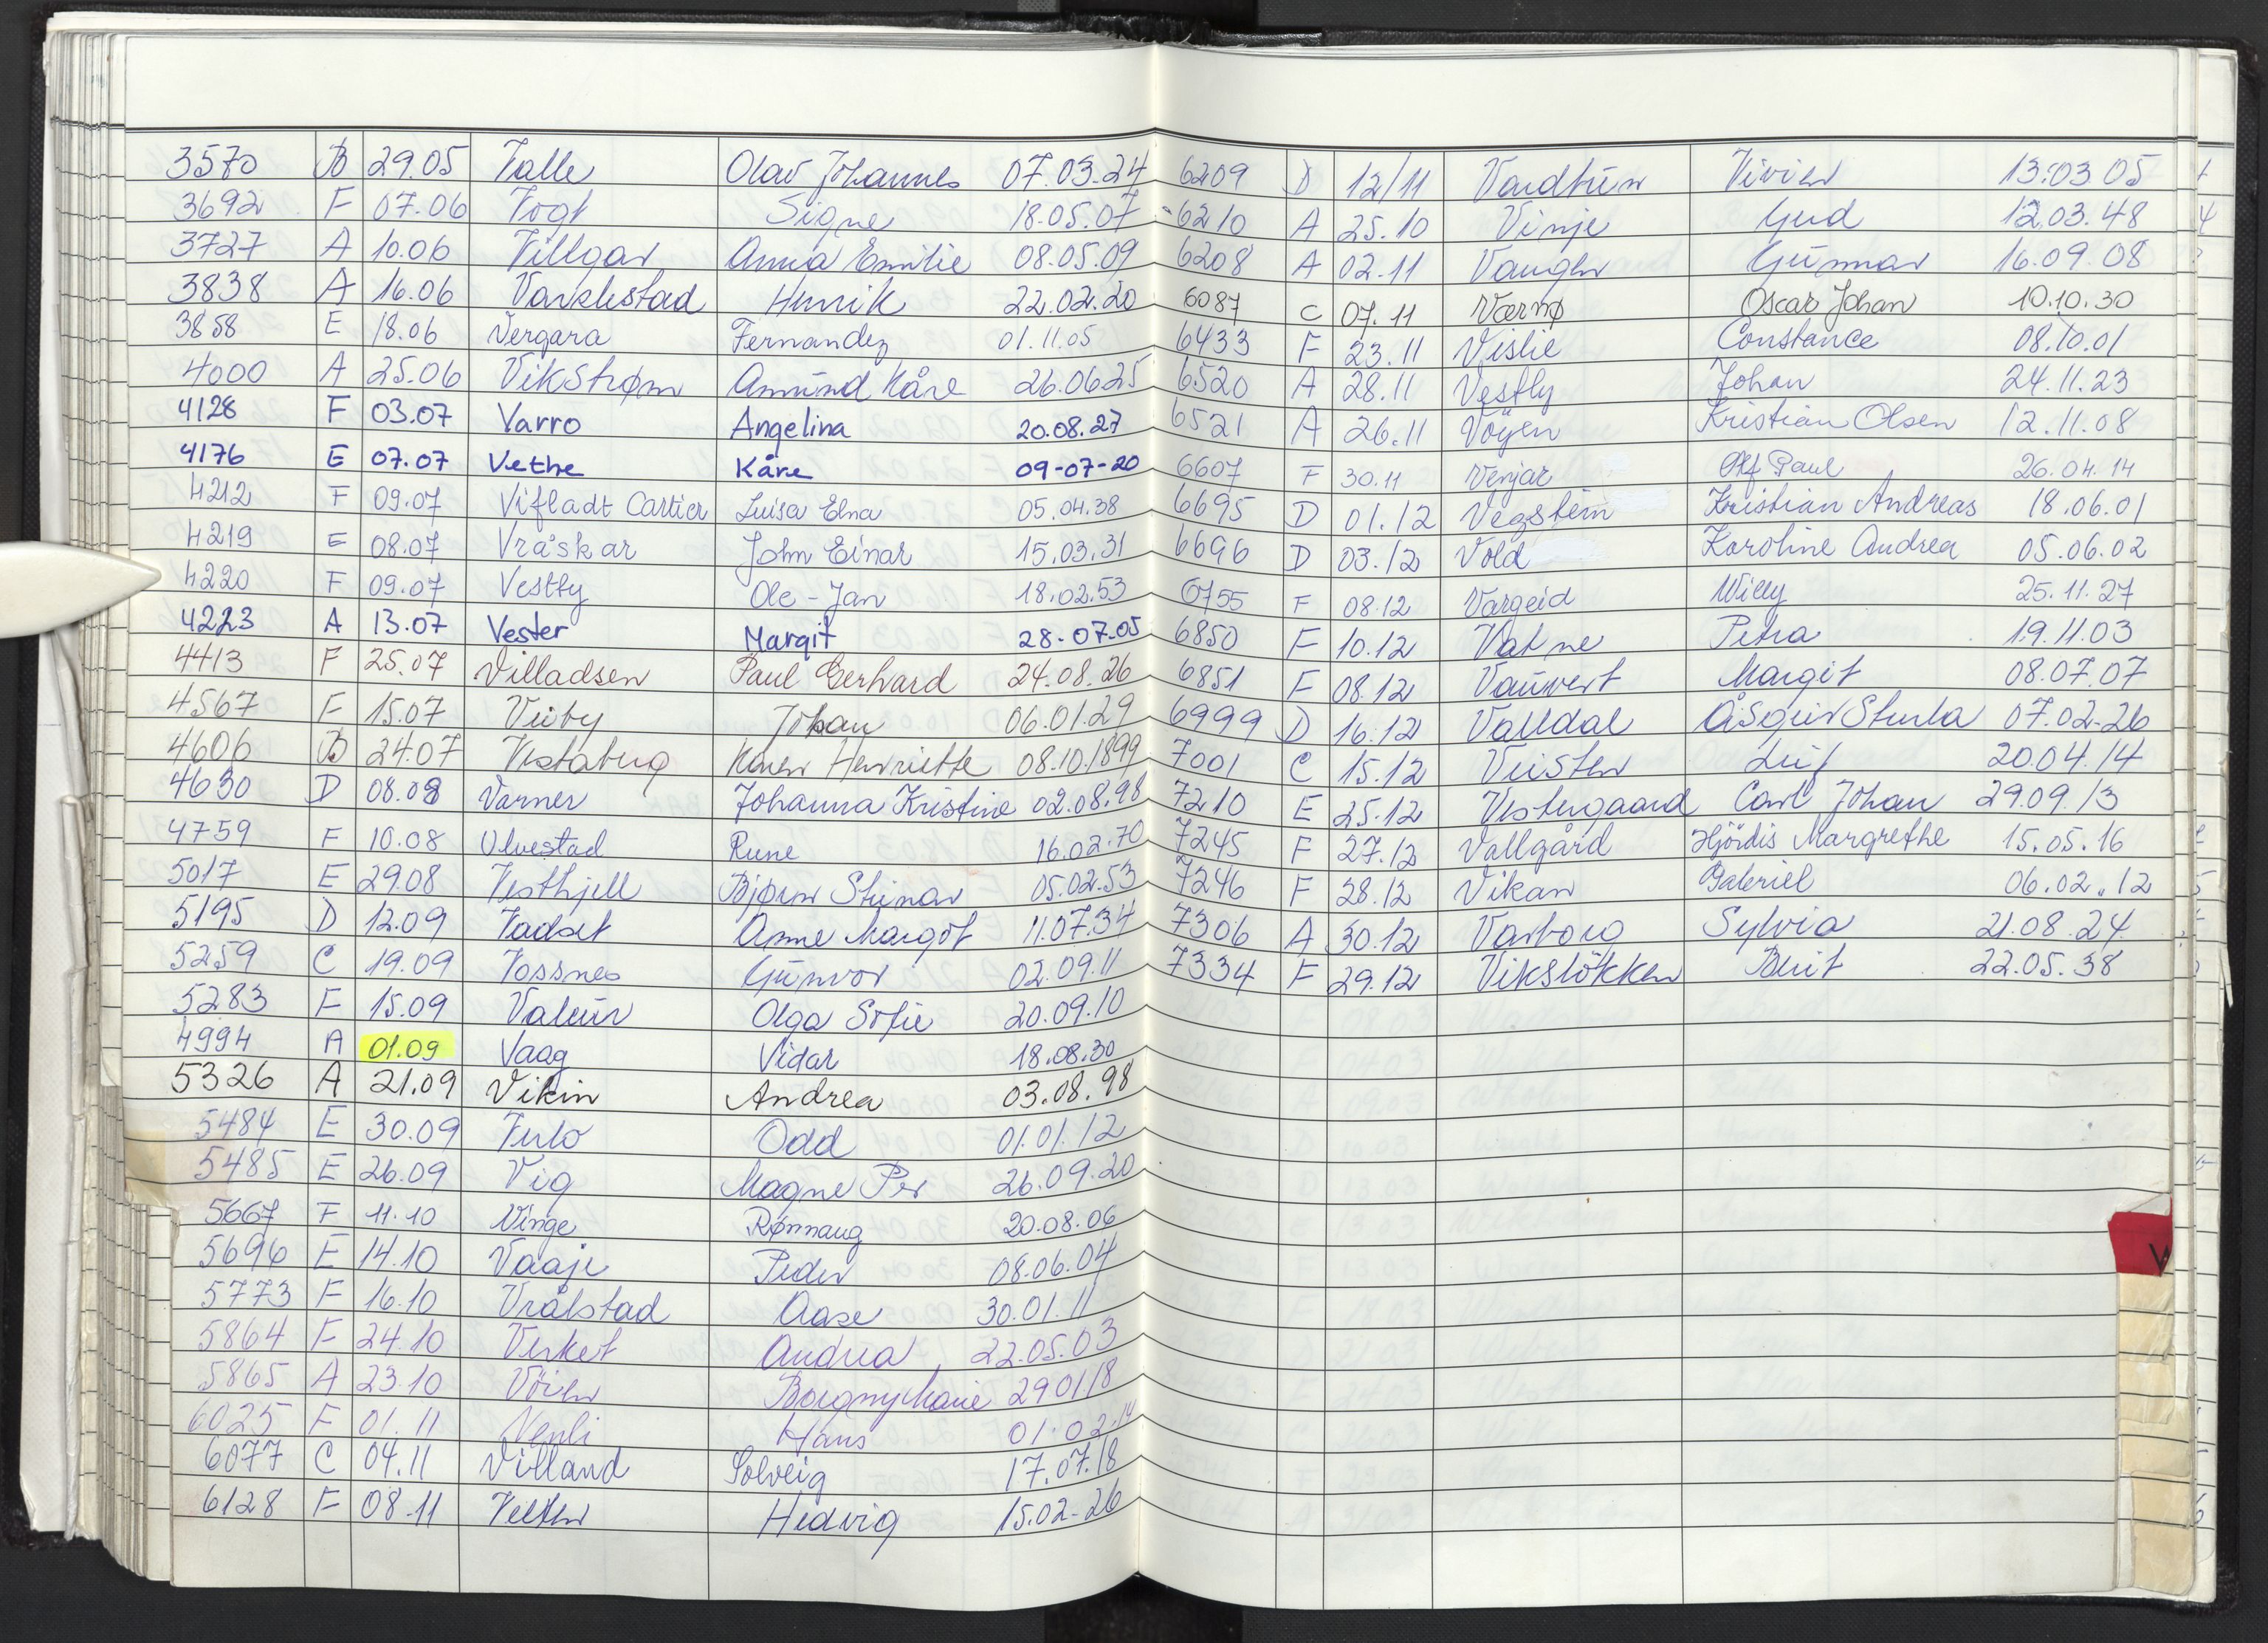 3570 B 29.05 Valle Olav Johannes 07.03.24
3692 F 07.06 Vogt Signe 18.05.07
3727 A 10.06 Villgar Anna Emilie 08.05.09
3838 A 16.06 Henrik 22.02.20
3858 E 18.06 Vergara Fernandez 01.11.05
4000 A 25.06 Vikstrøm Amund Kåre 26.06.25
4128 F 03.07 Varro Angelina 20.08.27
4176 E 07.07 Vethe Kåre 09-07-20
4212 F 09.07 Vifladt Cartier Luisa Elna 05.04.38
4219 E 08.07 Vråskar John Einar 15.03.31
4220 F 09.07 Vestby Ole-Jan 18.02.53
4223 A 13.07 Vester Margit 28-07-05
4413 F 25.07 Villadsen Paul Gerhard 24.08.26
4567 F 15.07 Veiby Johan 06.01.29
4606 B 24.07 Vestaberg Karen Henriette 08.10.1899
4630 D 08.08 Varner Johanna Kristine 02.08.98
4759 F 10.08 Ulvestad Rune 16.02.70
5017 E 29.08 Vesthjell Bjørn Steinar 05.02.53
5195 D 12.09 Vadset Anne Margot 11.07.34
5259 C 19.09 Vossnes Gunvor 02.09.11
5283 F 15.09 Valeur Olga Sofie 20.09.10
4994 A 01.09 Vaag Vidar 18.08.30
5326 A 21.09 Vikin Andrea 03.08.98
5484 E 30.09 Odd 01.01.12
5485 E 26.09 Vig Magne Per 26.09.20
5667 F 11.10 Vinge Rønnaug 20.08.06
5696 E 14.10 Vaaje Peder 08.06.04
5773 F 16.10 Vrålstad Aase 30.01.11
5864 F 24.10 Verket Andrea 22.05.03
5865 A 23.10 Vöien Borgny Marie 29.01.18
6025 F 01.11 Venli Hans 01.02.14
6077 C 04.11 Villand Solveig 17.07.18
6128 F 08.11 Velten Hedvig 15.02-26
6209 D 12/11 Vardtun Vivien 13.03.05
6210 A 25.10 Vinje Gud 12.03.48
6208 A 02.11 Vangen Gunnar 16.09.08
6087 C 07.11 Værnø Oscar Johan 10.10.30
6433 F 23.11 Vislie Constance 08.10.01
6520 A 28.11 Vestly Johan 24.11.23
6521 A 26.11 Vöyen Kristian Olsen 12.11.08
6607 F 30.11 Venjar Alf Paul 26.04.14
6695 D 01.12 Vegstein Kristian Andreas 18.06.01
6696 D 03.12 Vold Karoline Andrea 05.06.02
6755 F 08.12 Vargeid Willy 25.11.27
6850 F 10.12 Vatne Petra 19.11.03
6851 F 08.12 Vauvert Margit 08.07.07
6999 D 16.12 Valldal Åsgeir Sturla 07.02-26
7001 C 15.12 Veisten Leif 20.04.14
7210 E 25.12 Vestergaard Carl Johan 29.09.13
7245 F 27.12 Vallgård Hjördis Margrethe 15.05.16
7246 F 28.12 Vikan Gabriel 06.02.12
7306 A 30.12 Varborg Sylvia 21.08.24
7334 F 29.12 Vikslökken Berit 22.05.38